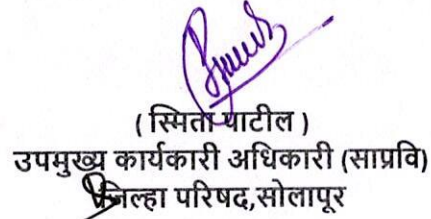 ( स्मिता पाटील )
उपमुख्य कार्यकारी अधिकारी (साप्रवि)
जिल्हा परिषद,सोलापूर